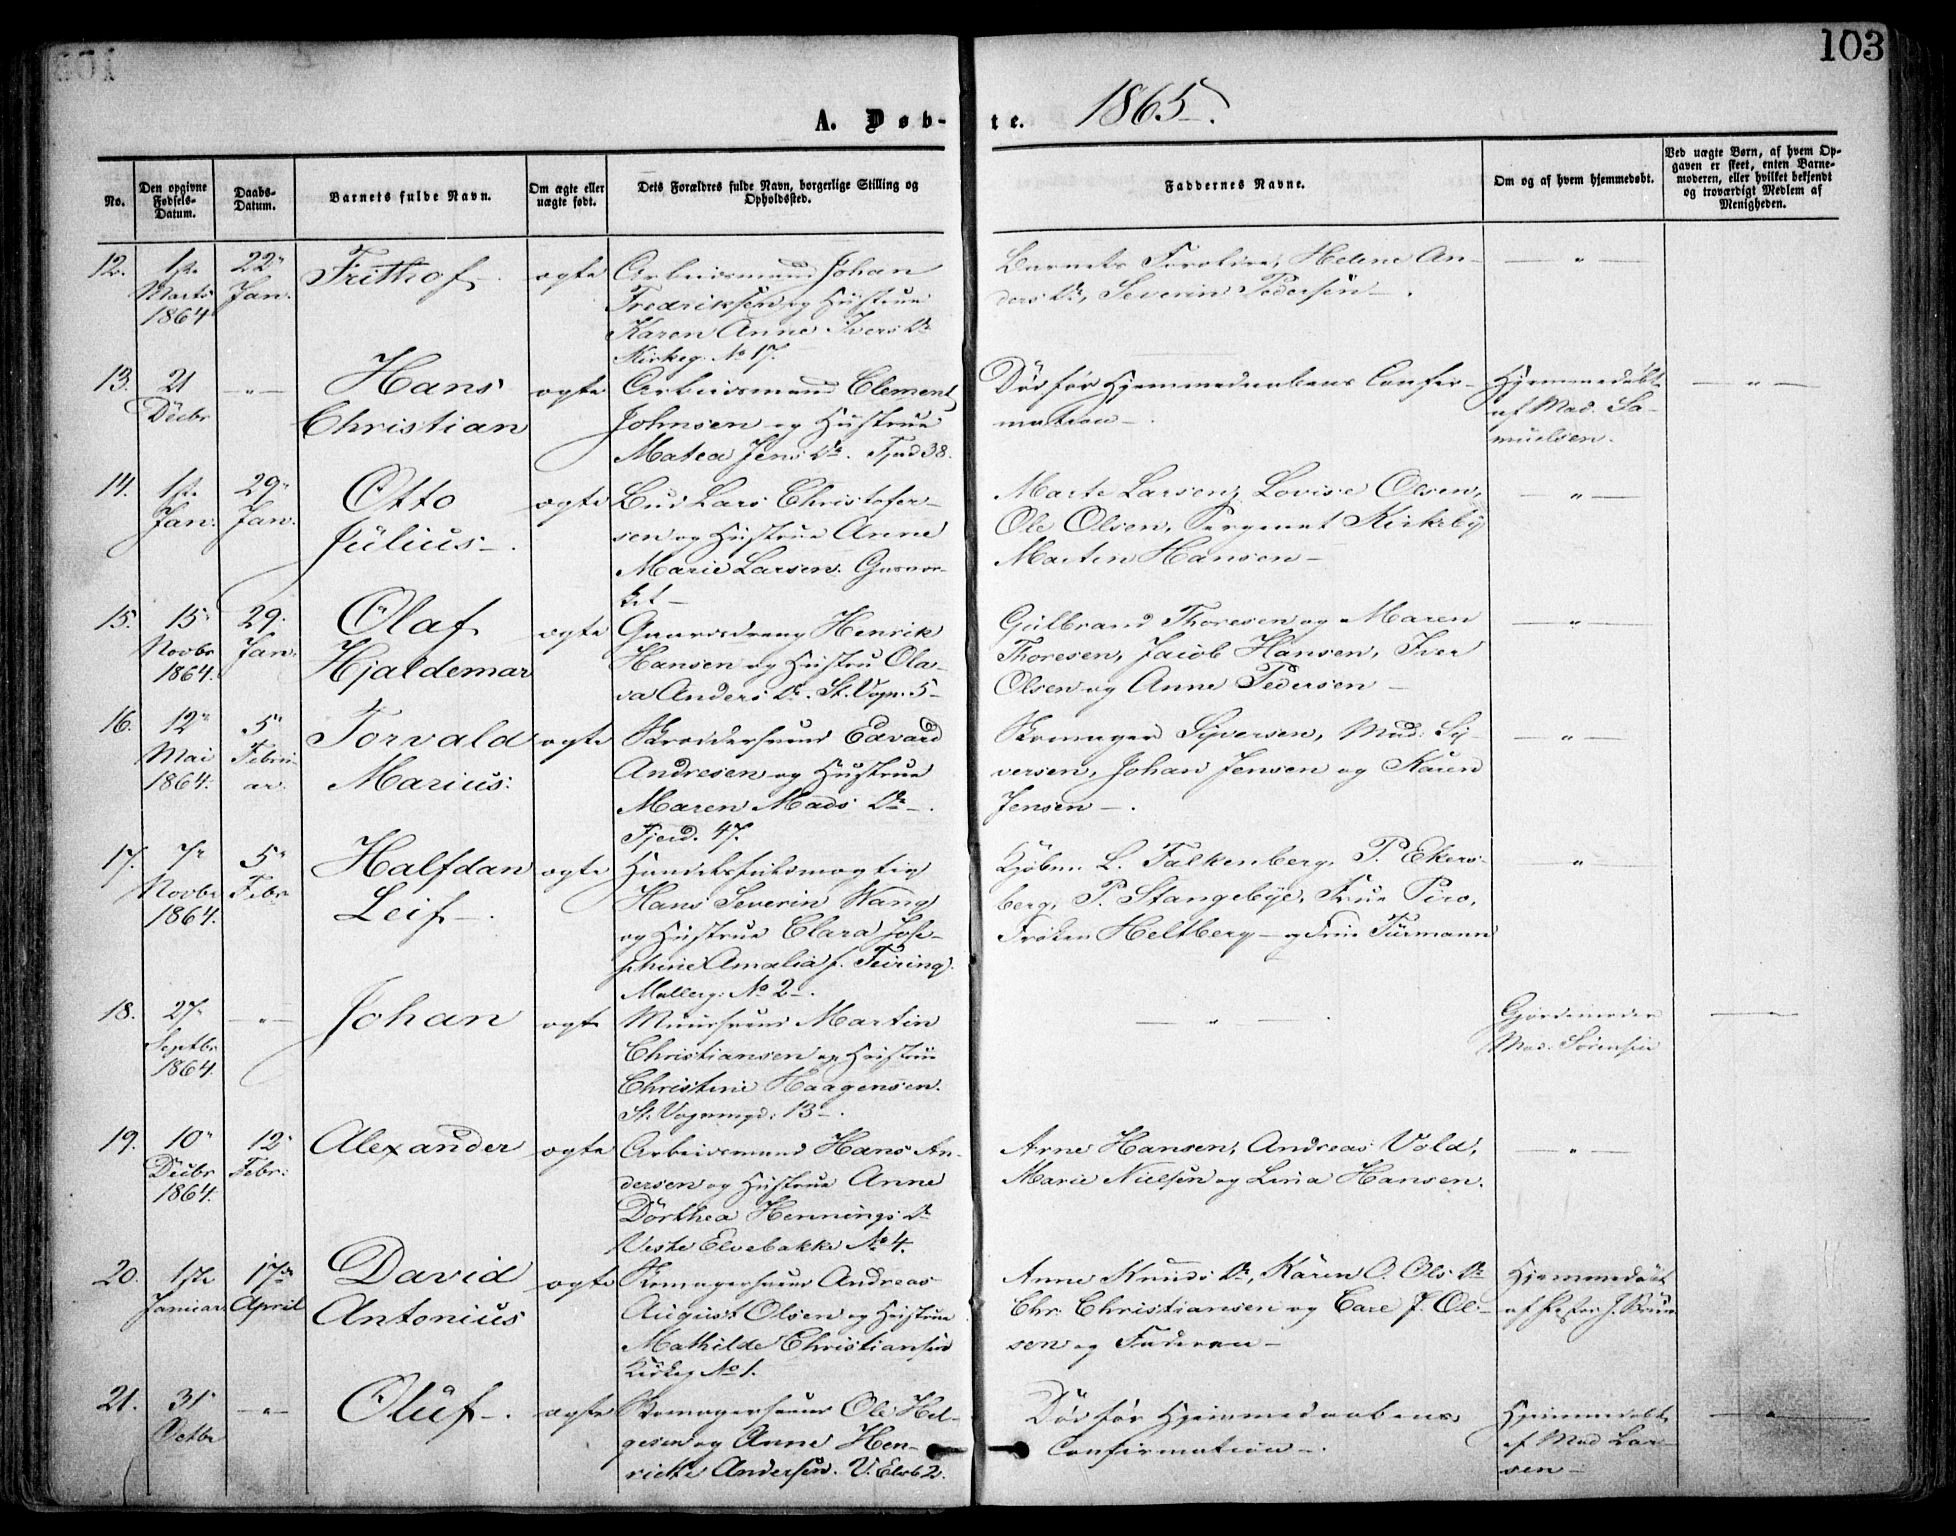 103
A. Døb- te. 1865.
No.
Den opgivne Fødsels-Datum.
Daabs-Datum.
Barnets fulde Navn.
Om ægte eller uægte født.
Dets Forældres fulde Navn, borgerlige Stilling og Opholdssted.
Faddernes Navne.
Om og af hvem hjemmedøbt.
Ved uægte Børn, af hvem Opgaven er skeet, enten Barnemoderen, eller hvilket bekjendt og troværdigt Medlem af Menigheden.
12. 1ste Marts 1864 22 Jan. Frithof ægte
Arbeidsmand Johan
Fredriksen og Hustrue
Karen Anne Ivers Dr
Kirkeg. No 17.
Barnets Forældre, Helene An-
ders Dr, Severin Pedersen
13. 21 Decbr Hans Christian ægte
Arbeidsmand Clement
Johnsen og Hustrue
Matea Jens Dr. Fjerd 38.
Død før Hjemmedaabens Confir-
mation
Hjemmedøbt
af Mad. Sa-
muelsen.
14. 1ste Jan. 29 Jan. Otto Julius ægte
Bud Lars Christofer-
sen og Hustrue Anne
Marie Larsen. Gasvær-
ket
Marte Larsen, Lovise Olsen,
Ole Olsen, Sergeant Kirkeby
Martin Hansen
15. 15 Novbr 1864. 29. Jan. Olaf Hjaldemar ægte
Gaardsdreng Henrik
Hansen og Hustru Ola-
va Anders Dr. St. Vogn. 5
Gulbrand Thoresen og Maren
Thoresen, Jacob Hansen, Iver
Olsen og Anne Pedersen
16. 12 Mai 1864. 5 Februar. Torvald Marius. ægte
Skræddersvend Edvard
Andresen og Hustrue
Maren Mads Dr.
Fjerd. 47.
Skomager Syversen, Mad: Sy-
versen, Johan Jensen og Karen
Jensen
17. 7 Novbr 1864. 5 Febr Halfdan Leif ægte
Handelsfuldmægtig
Hans Severin Wang
og Hustrue Clara Jose-
phine Amalia f. Feiring.
Mallerg: No 2.
Kjøbm. L. Falkenberg, P. Ekers-
berg, P. Stangebye, Frue Piro,
Frøken Heltberg og Frue Turmann
18. 27 Septbr 1864. Johan ægte
Muursvend Martin
Christiansen og Hustrue
Christine Haagensen.
St. Vognmgd: 13.
Gjordemoder
Mad. Sørensen
19. 10 Decbr 1864. 12 Febr: Alexander ægte
Arbeidsmand Hans An-
dersen og Hustrue Anne
Dorthea Hennings Dr
Vestre Elvebakke No 4.
Arne Hansen, Andreas Vold,
Marie Nielsen og Lina Hansen.
20. 1ste Januar 17de April David Antonius ægte
Skomagersvend Andreas
August Olsen og Hustrue
Mathilde Christiansen
Kirkeg No 1.
Anne Knuds Dr, Karen O. Ols Dr
Chr. Christiansen og Carl J. Ol-
sen og Faderen
Hjemmedøbt
af J. Bruun
21. 31 Octbr Oluf. ægte
Skomagersvend Ole Hel-
gesen og Anne Hen-
riette Andersen. V. Elvb 2.
Død før Hjemmedaabens
Confirmation.
Hjemmedøbt
af Mad Lar-
sen